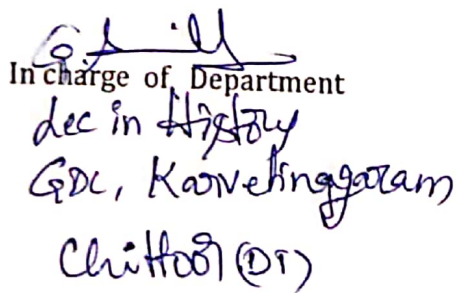 In charge of Department
Lec in History
GDC, Karvetinagaram
Chittoor (DT)